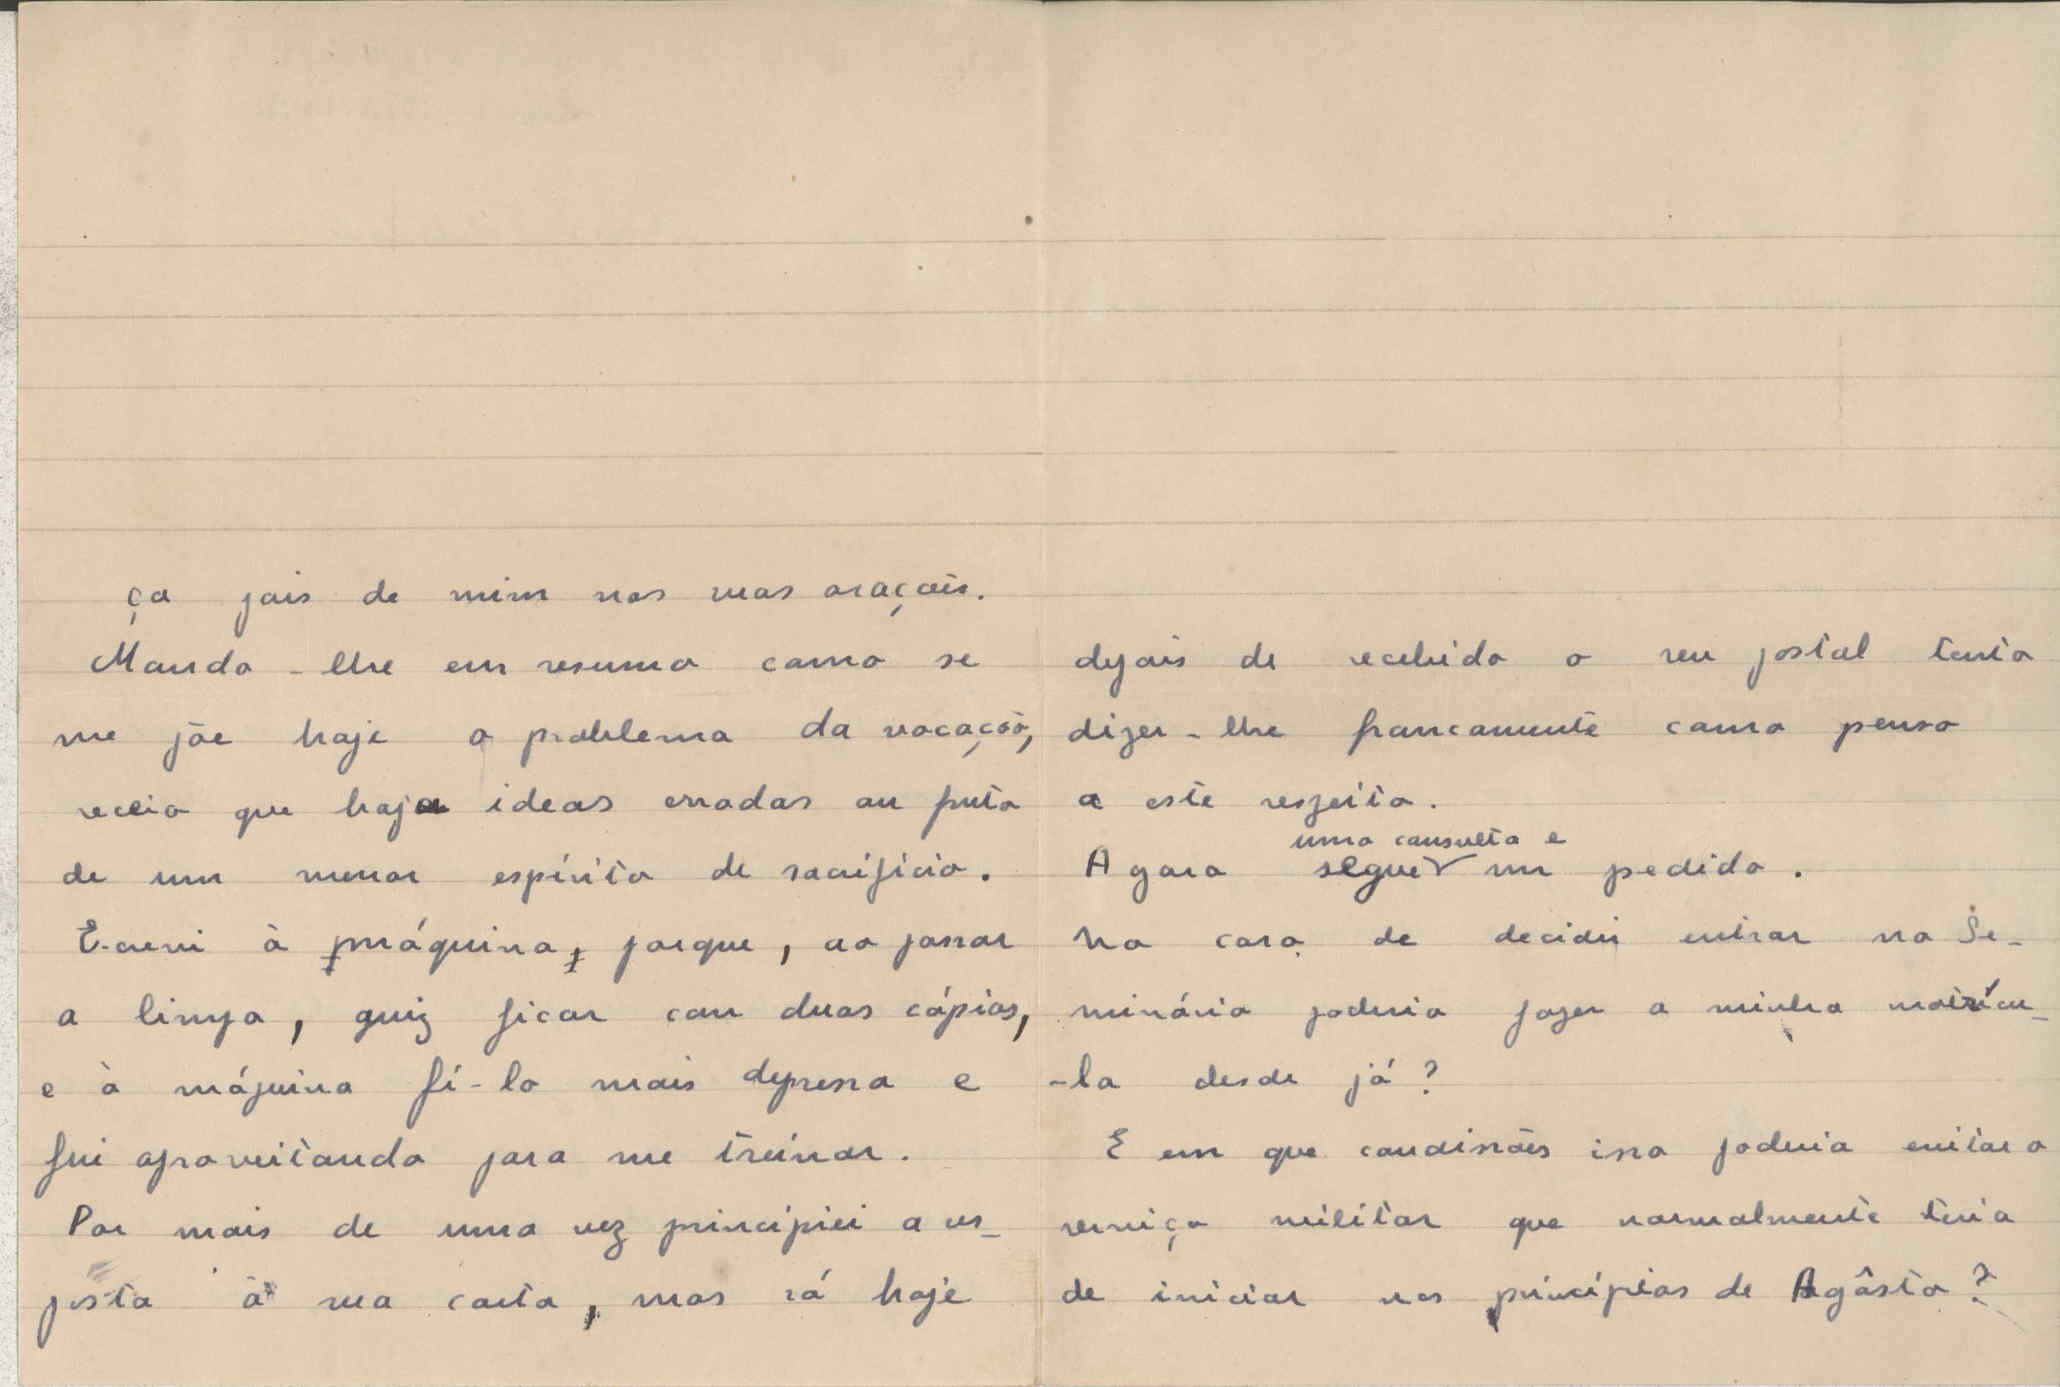 ça pois de mim nas suas orações.
Mando-lhe em resumo como se
me põe hoje o problema da vocação,
receio que haja ideas erradas ou fruto
de um menor espírito de sacrifício.
Escrevi à máquina, porque, ao passar
a limpo, quiz ficar com duas cópias,
e à máquina fi-lo mais depressa e
fui aproveitando para me treinar.
Por mais de uma vez principiei a res-
posta à sua carta, mas só hoje
depois de recebido o seu postal tento
dizer-lhe francamente como penso
a este respeito.
Agora segue uma consulta e um pedido.
No caso de decidir entrar no Se-
minário poderia fazer a minha matrícu-
-la desde já?
E em que condisões isso poderia evitar o
serviço militar que normalmente teria
de iniciar nos princípios de Agôsto?